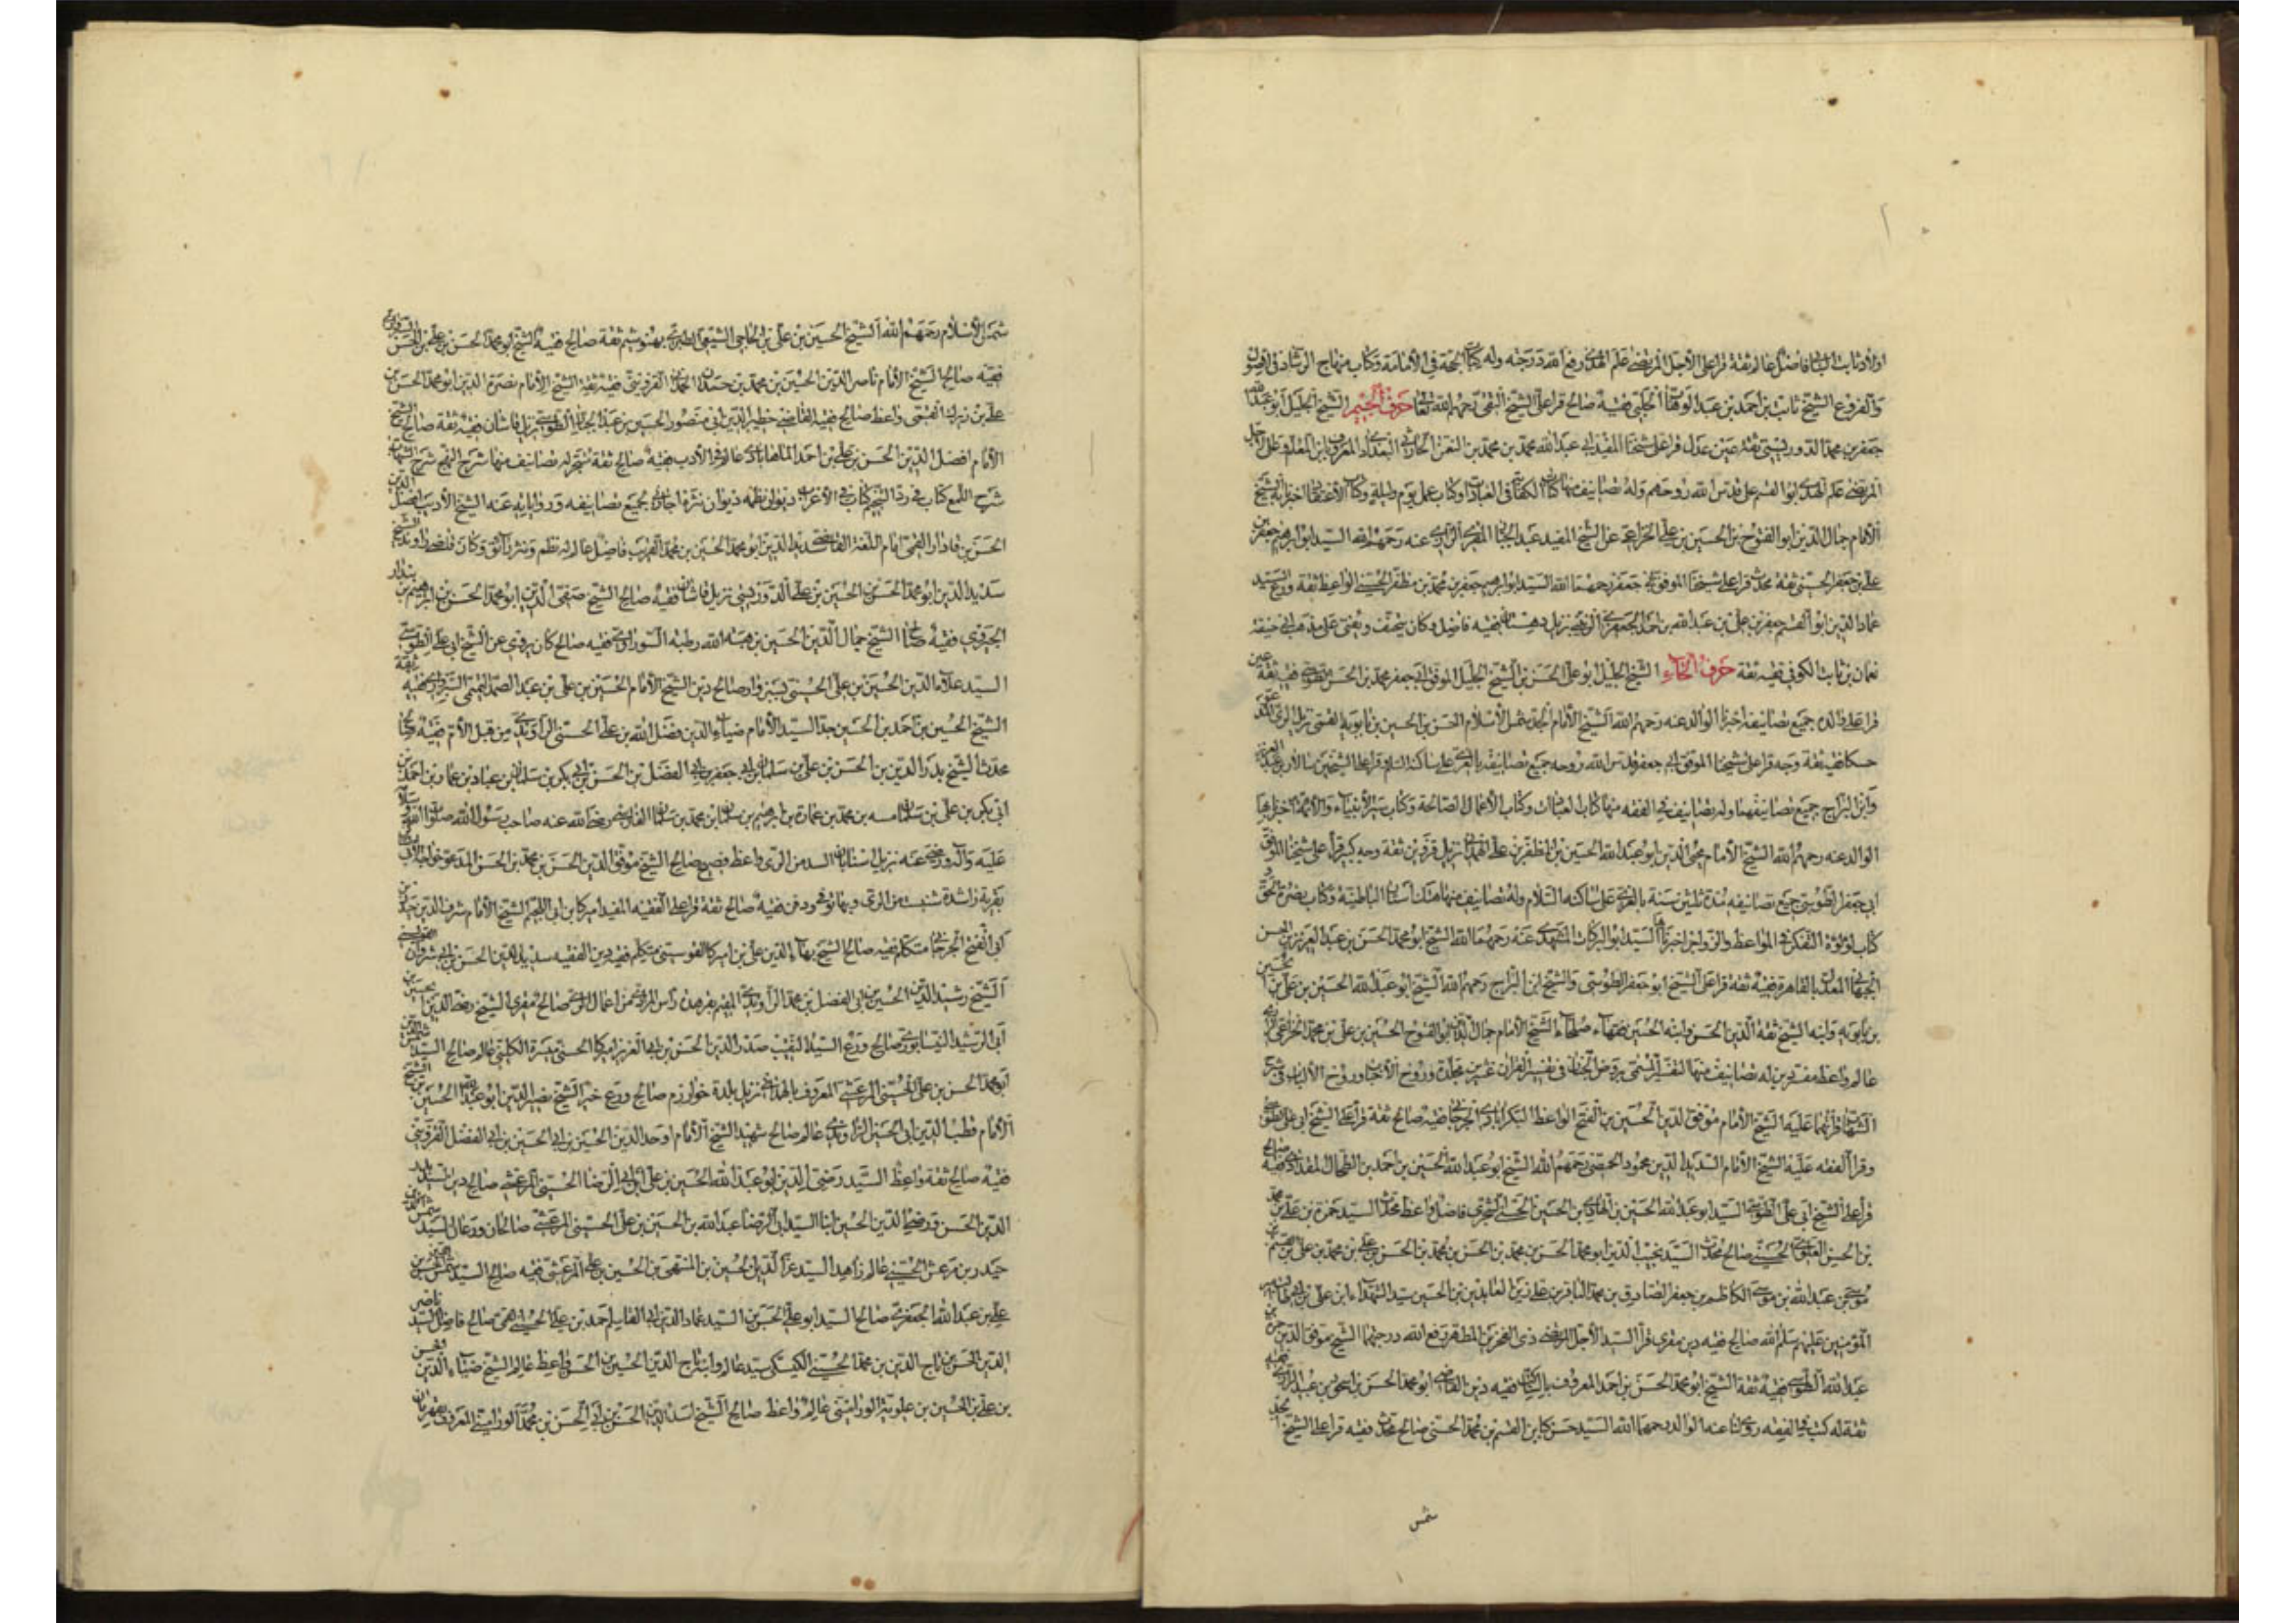 اولاد ثابت البناني فاضل عالم ثقة قرا على الاجل المرتضى علم الهدى رفع الله درجته وله كتاب الحجة في الامامة وكتاب منهاج الرشاد في الاصول
والفروع الشيخ ثابت بن احمد بن عبد الوهاب الحلبي فقيه صالح قرا على الشيخ التقي رحمهم الله تعالى حرف الجيم الشيخ الجليل ابو عبد الله
جعفر بن محمد الدوريستي ثقة عين عدل قرا على شيخنا المفيد ابي عبد الله محمد بن محمد بن النعمن الحارثي البغدادي المعروف بابن المعلم وعلى الاجل
المرتضى علم الهدى ابو القسم علي قدس الله روحهم وله تصانيف منها كتاب الكفاية في العبادات وكتاب عمل يوم وليلة وكتاب الاعتقاد اخبرنا به الشيخ
الامام جمال الدين ابو الفتوح بن الحسين بن علي الخزاعي عن الشيخ المفيد عبد الجبار المقري الرازي عنه رحمهم الله السيد ابو ابرهيم جعفر بن
علي بن جعفر الحسني ثقة محدث قرا على شيخنا الموفق ابي جعفر رحمهما الله السيد ابو ابرهيم جعفر بن محمد بن مظفر الحسيني الواعظ ثقة ورع السيد
عماد الدين ابو القسم جعفر بن علي بن عبد الله بن احمد الجعفري الزينبي نزيل دهستان فقيه فاضل وكان يتحنف ويفتي على مذهب ابي حنيفة
نعمان بن ثابت الكوفي فقيه ثقة حرف الحاء الشيخ الجليل ابو علي الحسن بن الشيخ الجليل الموفق ابي جعفر محمد بن الحسن الطوسي فقيه ثقة عين
قرا على والده جميع تصانيفه اخبرنا الوالد عنه رحمهم الله الشيخ الامام الجد شمس الاسلام الحسن بن الحسين بن بابويه القمي نزيل الري المدعو
حسكا فقيه ثقة وجه قرا على شيخنا الموفق ابي جعفر قدس الله روحه جميع تصانيفه بالغري على ساكنه السلام وقرا على الشيخين سالار بن عبد العزيز
وابن البراج جميع تصانيفهما وله تصانيف في الفقه منها كتاب العبادات وكتاب الاعمال الصالحة وكتاب سير الانبياء والائمة اخبرنا بها
الوالد عنه رحمهم الله الشيخ الامام محيي الدين ابو عبد الله الحسين بن المظفر بن علي الحمداني نزيل قزوين ثقة وجه كبير قرأ على شيخنا الموفق
ابي جعفر الطوسي جميع تصانيفه مدة ثلثين سنة بالغري على ساكنه السلام وله تصانيف منها هتك استار الباطنية وكتاب نصرة الحق و
كتاب لؤلؤة التفكر في المواعظ والزواجر اخبرنا بها السيد ابو البركات المشهدي عنه رحمهما الله الشيخ ابو محمد الحسن بن عبد العزيز بن الحسن
الجبهاني المعدل بالقاهرة فقيه ثقة قرا على الشيخ ابو جعفر الطوسي والشيخ ابن البراج رحمهم الله الشيخ ابو عبد الله الحسين بن علي بن الحسين
بن بابويه وابنه الشيخ ثقة الدين الحسن وابنه الحسين فقهاء صلحاء الشيخ الامام جمال الدين ابو الفتوح الحسين بن علي بن محمد الخزاعي الرازي
عالم واعظ مفسر دين له تصانيف منها التفسير المسمى بروض الجنان في تفسير القران عشرين مجلدة وروح الاحباب وروح الالباب في شرح
الشهاب قرأتهما عليه الشيخ الامام موفق الدين الحسين بن الفتح الواعظ البكرابادي الجرجاني فقيه صالح ثقة قرا على الشيخ ابي علي الطوسي
وقرا الفقه عليه الشيخ الامام السديد الدين محمود الحمصي رحمهم الله الشيخ ابو عبد الله الحسين بن احمد بن الطحال المقدادي فقيه صالح
قرا على الشيخ ابي علي الطوسي السيد ابو عبد الله الحسين بن الهادي بن الحسين الحسني الشجري فاضل واعظ محدث السيد حمزة بن علي بن محمد
بن الحسن العلوي الحسيني صالح محدث السيد نجيب الدين ابو محمد الحسن بن محمد بن الحسن بن محمد بن الحسن بن علي بن محمد بن علي بن القسم بن
موسى بن عبد الله بن موسى الكاظم بن جعفر الصادق بن محمد الباقر بن علي زين العابدين بن الحسين سيد الشهداء ابن علي بن ابيطالب امير
المؤمنين عليهم سلم الله صالح فقيه دين مقري قرا السيد الاجل المرتضى ذي الفخرين المطهر رفع الله درجتهما الشيخ موفق الدين حسن بن محمد
عبد الله الطوسي فقيه ثقة الشيخ ابو محمد الحسن بن احمد المعروف بالسكاكي فقيه دين القاضي ابو محمد الحسن بن اسحق بن عبيد الرازي فقيه
ثقة له كتب في الفقه روى لنا عنه الوالد رحمهما الله السيد حسن كيا بن القسم بن محمد الحسني صالح محدث فقيه قرا على الشيخ الجد
شمس
شمس الاسلام رحمهم الله الشيخ الحسين بن علي بن الحاجي الشيعي الطبري بهنوشم ثقة صالح فقيه الشيخ ابو محمد الحسن بن علي بن الحسن السبزواري
فقيه صالح الشيخ الامام ناصر الدين الحسين بن محمد بن حمدان الحمداني القزويني فقيه ثقة الشيخ الامام نصرة الدين ابو محمد الحسن بن
علي بن زيرك القمي واعظ صالح فقيه القاضي خطير الدين ابي منصور الحسين بن عبد الجبار الطوسي نزيل قاشان فقيه ثقة صالح الشيخ
الامام افضل الدين الحسن بن علي بن احمد الماهابادي عالم في الادب فقيه صالح ثقة متبحر له تصانيف منها شرح النهج شرح الشهاب
شرح اللمع كتاب في رد التنجيم كتاب في الاعراب ديوان نظمه ديوان نثره اجازني بجميع تصانيفه ورواياته عنه الشيخ الاديب افضل الدين
الحسن بن فادار القمي امام اللغة القاضي سديد الدين ابو محمد الحسين بن محمد القريب فاضل عالم له نظم ونثر رائق وكان قاضي راوند الشيخ
سديد الدين ابو محمد الحسن بن الحسين بن علي الدوريستي نزيل قاشان فقيه صالح الشيخ صفي الدين ابو محمد الحسن بن ابرهيم بن بندار
الجيروي فقيه صالح الشيخ جمال الدين الحسين بن هبة الله رطبة السوراوي فقيه صالح كان يروي عن الشيخ ابي علي الطوسي
السيد علاء الدين الحسين بن علي الحسيني بسبزوار صالح دين الشيخ الامام الحسين بن علي بن عبد الصمد التميمي السبزواري فقيه ثقة
الشيخ الحسين بن احمد بن الحسين جد السيد الامام ضياء الدين فضل الله بن علي الحسني الراوندي من قبل الام فقيه صالح
محدث الشيخ بدر الدين بن الحسن بن علي بن سلمان بن ابي جعفر بن ابي الفضل بن الحسن بن ابي بكر بن سلمان بن عباد بن عمار بن احمد بن
ابي بكر بن علي بن سلمان بن محمد بن عمارة بن ابرهيم بن سلمان بن محمد بن سلمان الفارسي رضي الله عنه صاحب رسول الله صلوات الله
عليه وآله ورضي عنه نزيل اشنابان السد من الري واعظ فصيح صالح الشيخ موفق الدين الحسن بن محمد بن الحسن المدعو خواجه
بقرية راشدة شنبت من الري وبها توفي ودفن فقيه صالح ثقة قرا على الفقيه المفيد اميركا بن ابي اللجيم الشيخ الامام شرف الدين
ابي الفتح الجرجاني متكلم فقيه صالح الشيخ بهاء الدين علي بن اميركا القوسيني متكلم فقيه دين الفقيه سديد الدين الحسن بن انوشروان
الشيخ رشيد الدين الحسين بن ابي الفضل بن محمد الراوندي المقيم بقوهده راس الوادي من اعمال الري صالح مقري الشيخ رضي الدين الحسين بن
ابي الرشيد النيسابوري صالح ورع السيد النقيب صدر الدين الحسن بن ابي العزيز اميركا الحسني مسرة الكليني عالم صالح السيد شمس الدين
ابو محمد الحسن بن علي الحسيني المرعشي المعروف بالهمداني نزيل بلدة خوارزم صالح ورع خير الشيخ نصير الدين ابو عبد الله الحسين بن الشيخ
الامام قطب الدين ابي الحسين الراوندي عالم صالح شهيد الشيخ الامام اوحد الدين الحسين بن ابي الحسين بن ابي الفضل القزويني
فقيه صالح ثقة واعظ السيد رضي الدين ابو عبد الله الحسين بن علي ابي الرضا الحسيني المرعشي صالح دين السيد
الدين الحسن ورضي الدين الحسين ابنا السيد ابي الرضا عبد الله بن الحسين بن علي الحسيني المرعشي صالحان ورعان السيد شمس الدين
حيدر بن مرعش الحسيني عالم زاهد السيد عز الدين الحسين بن المنتهى بن الحسين بن علي المرعشي فقيه صالح السيد شمس الدين
علي بن عبد الله الجعفري صالح السيد ابو علي الحسن بن السيد عماد الدين ابي القاسم احمد بن علي الحسيني القمي صالح فاضل السيد ناصر
الدين الحسن بن تاج الدين بن محمد الحسيني الكيسكي سيد عالم وابنه تاج الدين الحسين بن الحسن واعظ عالم الشيخ ضياء الدين
بن علي بن الحسين بن علويه الوراميني عالم واعظ صالح الشيخ اسد الدين الحسن بن ابي الحسن بن محمد الوراميني المعروف بقهرمان